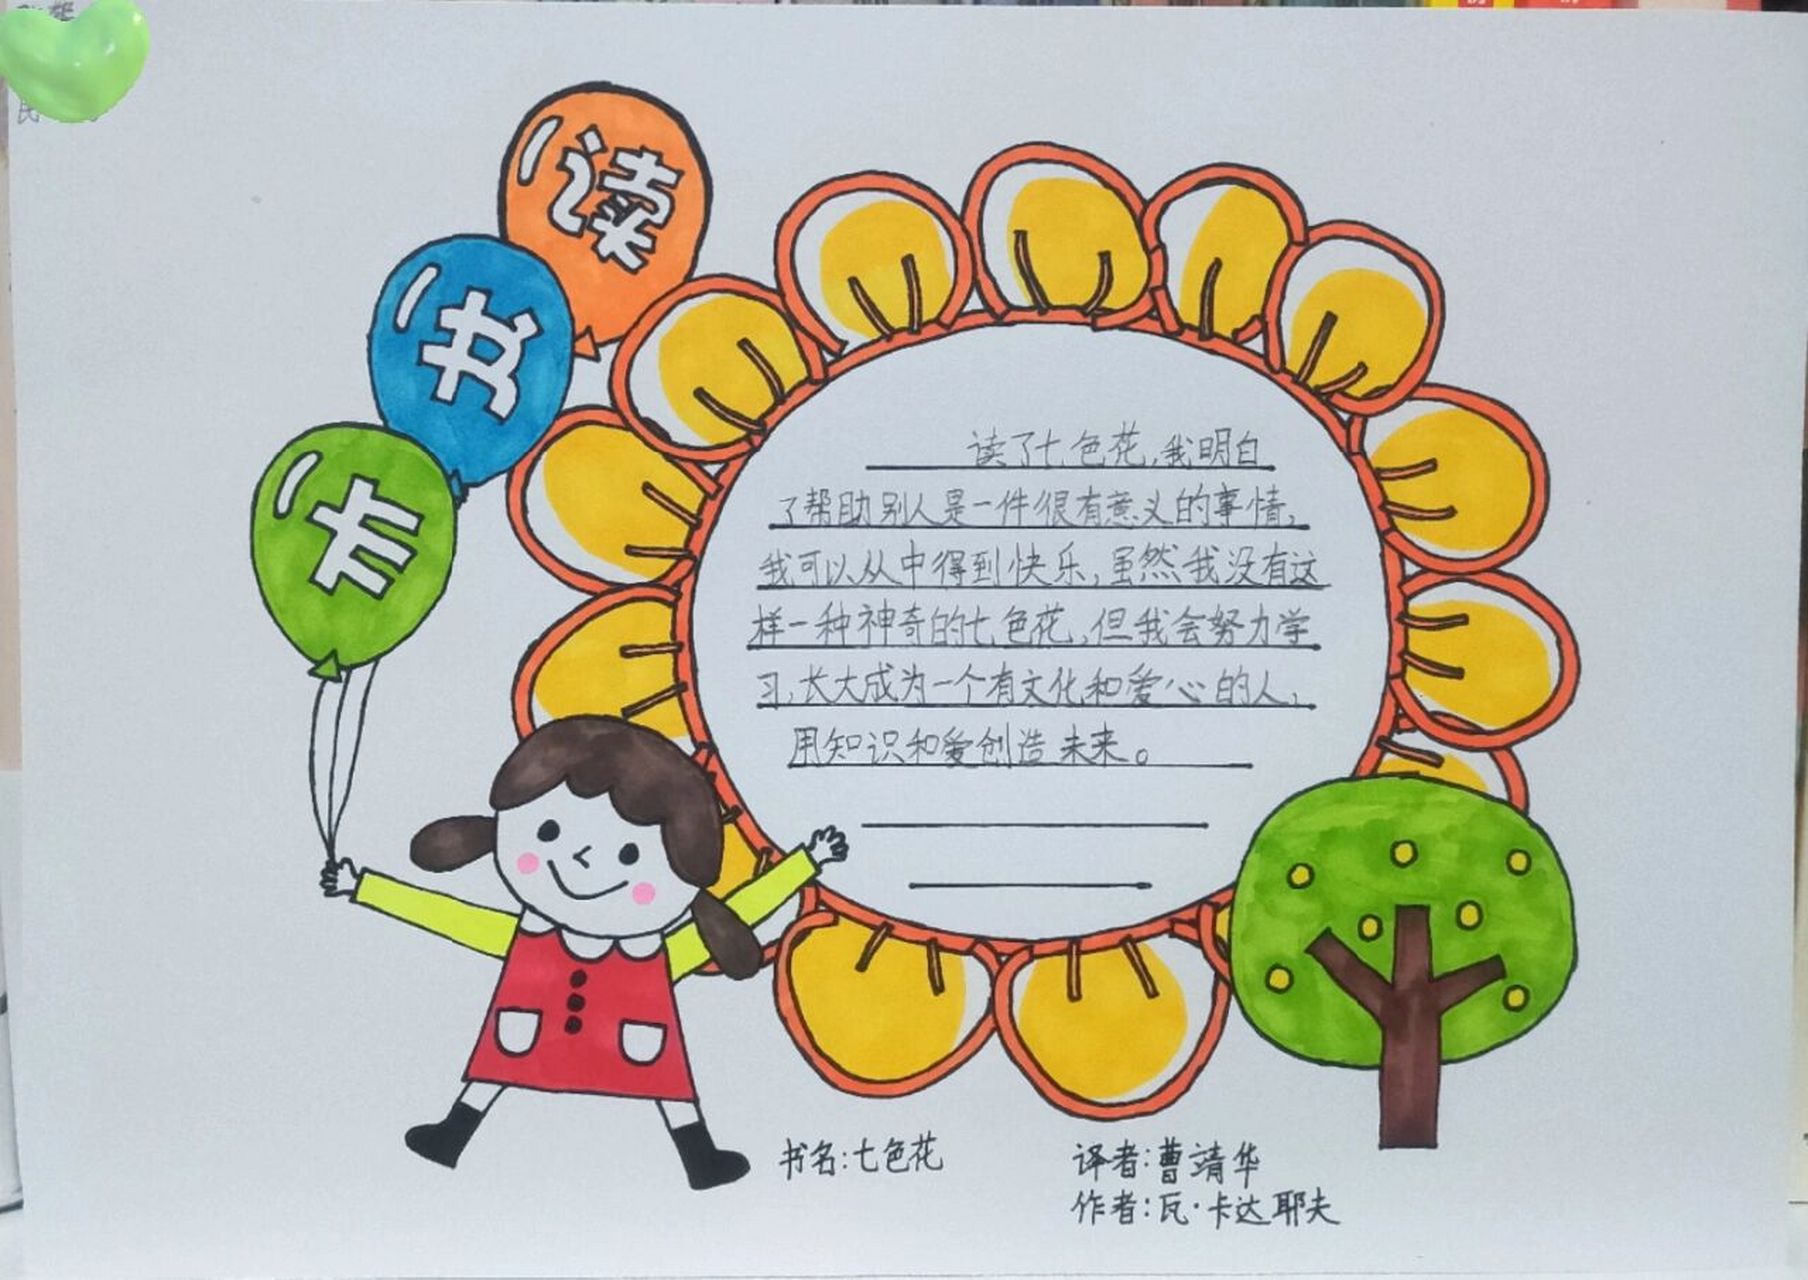 读
书
卡
读了七色花,我明白
了帮助别人是一件很有意义的事情,
我可以从中得到快乐,虽然我没有这
样一种神奇的七色花,但我会努力学
习,长大成为一个有文化和爱心的人,
用知识和爱创造未来。
书名:七色花
译者:曹靖华
作者:瓦·卡达耶夫